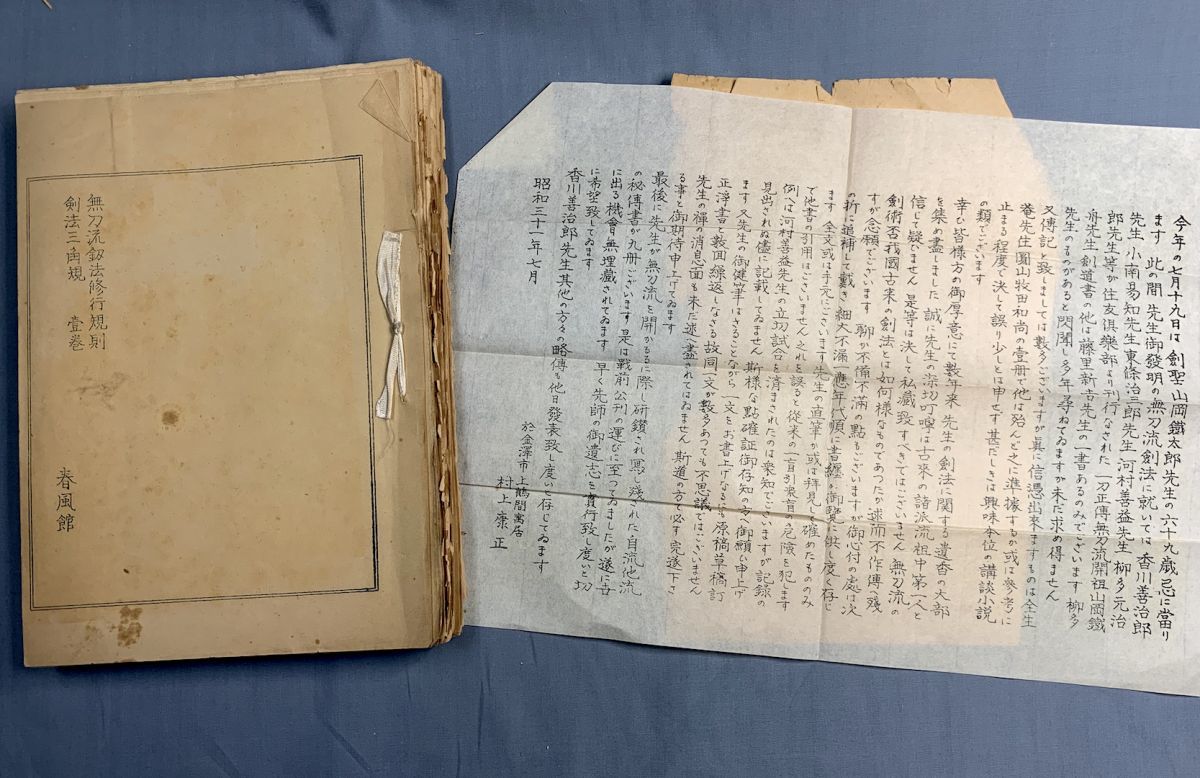 無刀流剱法修行規則
剣法三角規　壹巻
春風館
今年の七月十九日は劍聖山岡鐵太郎先生の六十九歳忌に當り
ます　此の間先生御發明の無刀流劍法に就いては香川善治郎
先生　小南易知先生　東條治三郎先生　河村善益先生　柳多元治
郎先生等が住友倶樂部より刊行なされた一刀正傳無刀流開祖山岡鐵
舟先生劍道書の他は藤里新吉先生の一書あるのみでございます　柳多
先生のものがあると聞き多年尋ねてゐますが未だ求め得ません
又傳記と致しましては數多ございますが眞に信憑出來ますものは全生
菴先生圓山牧田和尚の壹册で他は殆んど之に準據するか或は參考に
止まる程度で決して誤り少しとは申せず甚だしきは興味本位の講談小説
の類でございます
幸に皆様方の御厚意にて數年來　先生の劍法に關する遺香の大部
を集め盡しました　誠に先生の深切叮嚀は古來の諸派流祖中第一人と
信じて疑ひません　是等は決して私藏致すべきではございません　無刀流の
劍術否我國古來の劍法とは如何様なものであつたか述而不作傳へ殘
すが念願でございます　聊か不備不滿の點もございますが御心付の處は次
の折に追補して戴き　細大不漏一應年代順に書纏め御覽に供し度く存じ
ます　全文或は手元にございます先生の直筆か或は拜見し確めたもののみ
で他書の引用はございません　之れを誤ると從來の一盲引衆盲の危險を犯します
例へば河村善益先生の立切試合を濟まされたのは衆知でございますが記録の
見出されぬ儘に記載してゐません　斯様な點確証御存知の方へ御願ひ申上げ
ます　又先生の御健筆はさることながら一文をお書上げなるにも原稿草稿訂
正淨書と數回繰返しなさる故同一文が數多あつても不思議ではございません
先生の禪の消息面も未だ述べ盡されてはゐません　斯道の方で必ず完遂下さ
る事と御期待申上げてゐます
最後に先生が無刀流を開かるるに際し研鑽され遺し殘された自流他流
の秘傳書が九册ございます　是は戰前公刊の運びに至つてゐましたが遂に世
に出る機會無埋藏されてゐます　早く先師の御遺志を貫行致し度いと切
に希望致してゐます
香川善治郎先生其他の方々の略傳も他日發表致し度いと存じてゐます
昭和三十一年七月
於金澤市上鶴間寓居
村上康正